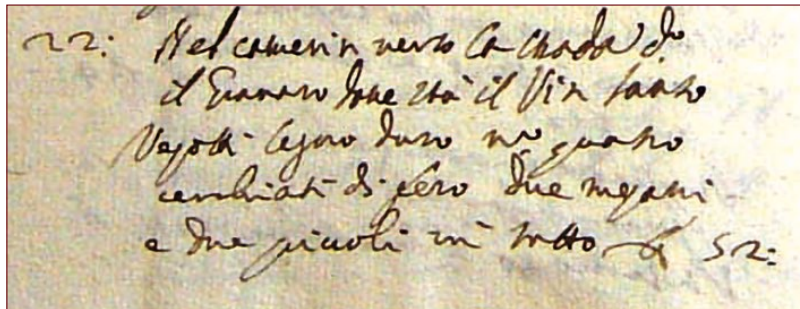 22: Nel camerin verso la strada d.º
il Granaro doue stà il Vin santo
legno duro nº quatro
cerchiati di fero due mezani
e due piccoli in tutto £ 52: